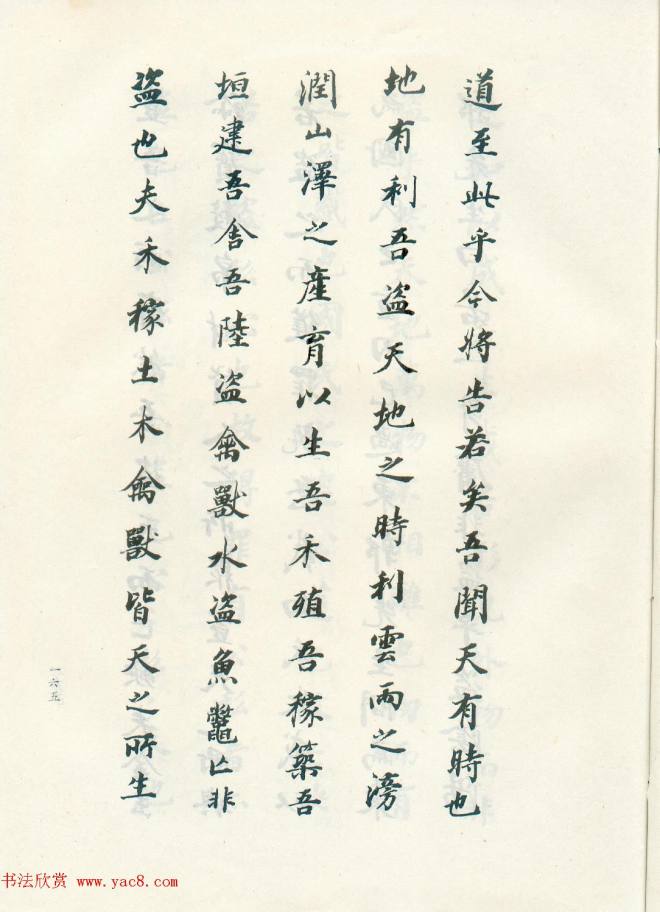 道至此乎今將告若矣吾聞天有時也
地有利吾盜天地之時利雲雨之滂
潤山澤之產育以生吾禾殖吾稼築吾
垣建吾舍吾陸盜禽獸水盜魚鼈亡非
盜也夫禾稼土木禽獸皆天之所生
一六五
书法欣赏 www.yac8.com